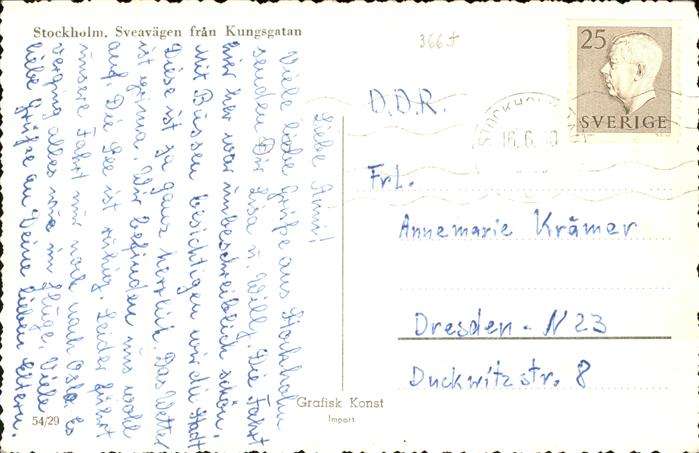 Stockholm. Sveavägen från Kungsgatan
366
25
SVERIGE
STOCKHOLM
16.6.
D.D.R.
Frl.
Annemarie Krämer
Dresden - N 23
Duckwitzstr. 8
Liebe Anni!
Viele liebe Grüße aus Stockholm
senden Dir Lisa u. Willy. Die Fahrt
hier her war unbeschreiblich schön.
Mit Bussen besichtigen wir die Stadt
Diese ist ja ganz herrlich. Das Wetter
ist prima. Wir befinden uns wohl
auf. Die See ist ruhig. Leider führt
unsere Fahrt nur noch nach Oslo. Es
verging alles wie im Fluge. Viele
liebe Grüße an Deine lieben Eltern.
54/29
Grafisk Konst
Import